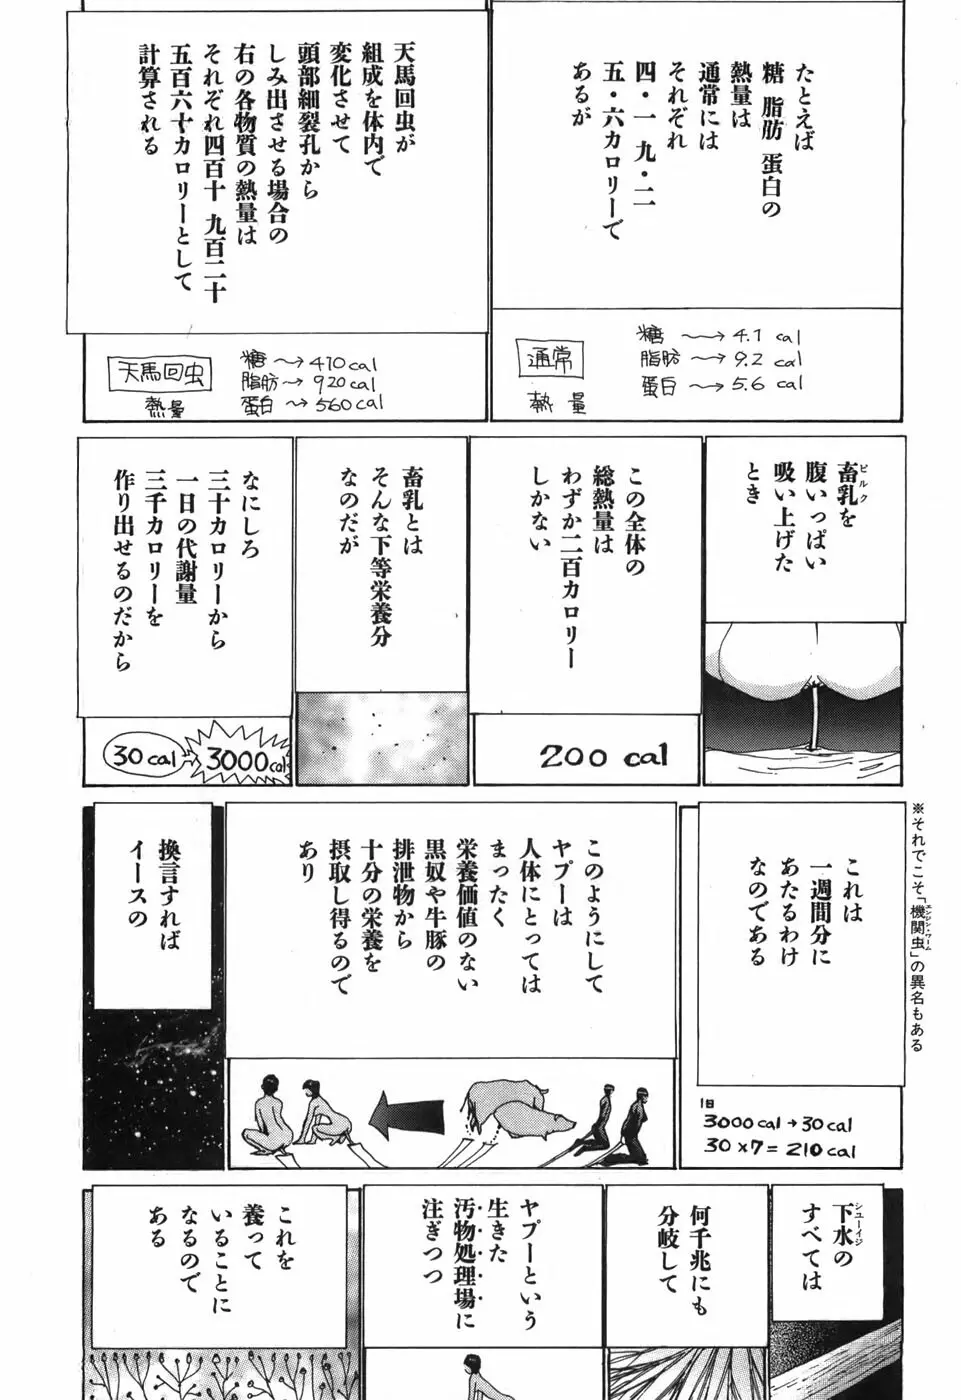 たとえば
糖 脂肪 蛋白の
熱量は
通常には
それぞれ
四・一 九・二
五・六カロリーで
あるが
通常
熱量
糖 → 4.1 cal
脂肪 → 9.2 cal
蛋白 → 5.6 cal
天馬回虫が
組成を体内で
変化させて
頭部細裂孔から
しみ出させる場合の
右の各物質の熱量は
それぞれ四百十 九百二十
五百六十カロリーとして
計算される
天馬回虫
熱量
糖 → 410 cal
脂肪 → 920 cal
蛋白 → 560 cal
畜乳を
ピルク
腹いっぱい
吸い上げた
とき
この全体の
総熱量は
わずか二百カロリー
しかない
200 cal
畜乳とは
そんな下等栄養分
なのだが
なにしろ
三十カロリーから
一日の代謝量
三千カロリーを
作り出せるのだから
30 cal → 3000 cal
※それでこそ「機関虫」の異名もある
エンジン・ワーム
これは
一週間分に
あたるわけ
なのである
1日
3000 cal → 30 cal
30 × 7 = 210 cal
このようにして
ヤプーは
人体にとっては
まったく
栄養価値のない
黒奴や牛豚の
排泄物から
十分の栄養を
摂取し得るので
あり
換言すれば
イースの
下水の
シューイジ
すべては
何千兆にも
分岐して
ヤプーという
生きた
汚物処理場に
注ぎつつ
これを
養って
いることに
なるので
ある